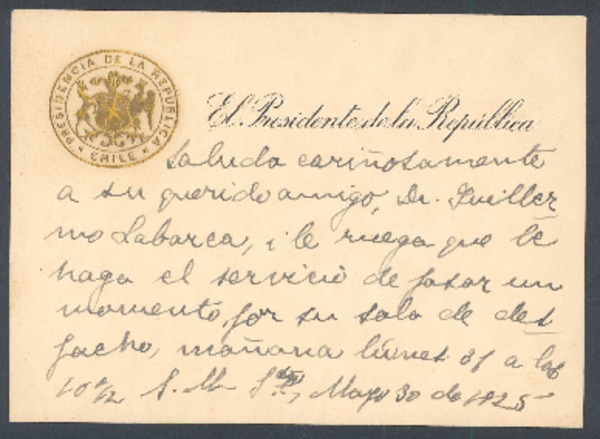 PRESIDENCIA DE LA REPUBLICA
CHILE
El Presidente de la República
saluda cariñosamente
a su querido amigo, Dn. Guiller
mo Labarca, i le ruega que le
haga el servicio de pasar un
momento por su sala de des
pacho, mañana lúnes 31 a las
10 1/2 S. M. Mayo 30 de 1925